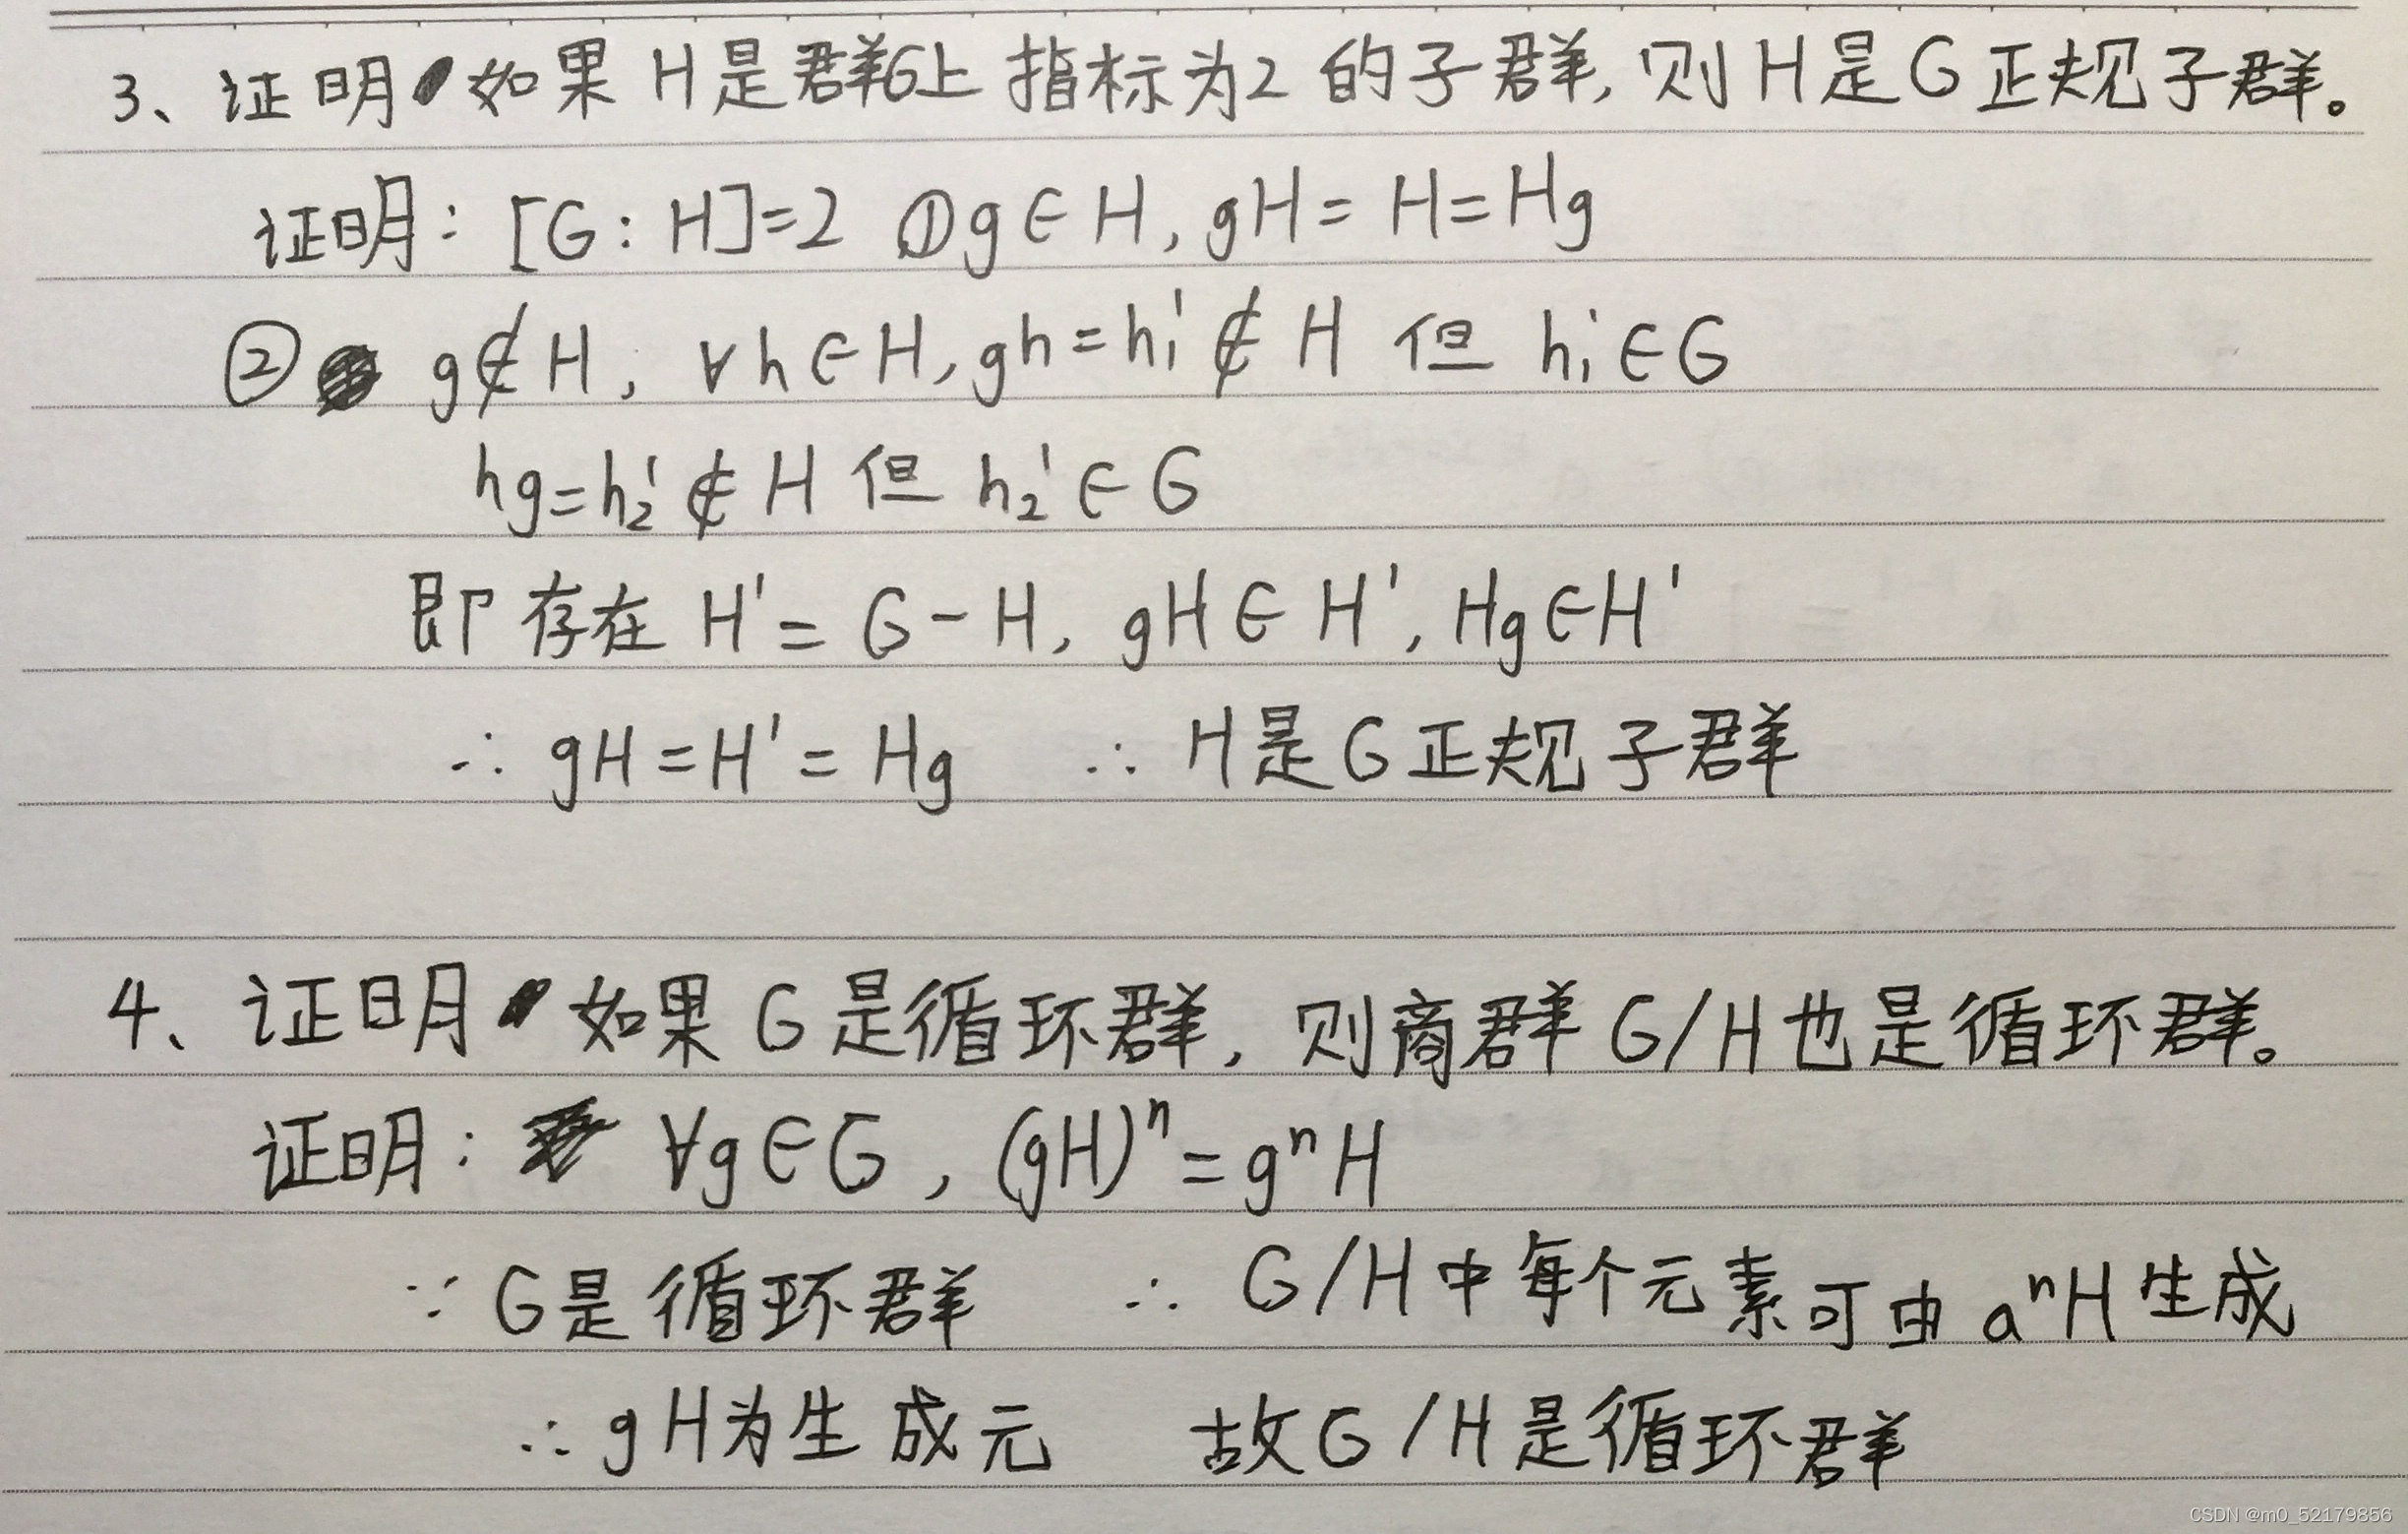 3、证明如果 H是群G上指标为2的子群,则H是G正规子群。
证明: [G:H]=2 ①g∈H, gH=H=Hg
② g∉H, ∀h∈H, gh=h₁'∉H 但 h₁'∈G
hg=h₂'∉H 但 h₂'∈G
即存在 H'=G-H, gH∈H', Hg∈H'
∴ gH=H'=Hg ∴ H是G正规子群
4、证明如果G是循环群, 则商群G/H也是循环群。
证明: ∀g∈G, (gH)ⁿ=gⁿH
∵ G是循环群 ∴ G/H中每个元素可由aⁿH生成
∴ gH为生成元 故G/H是循环群
CSDN @m0_52179856